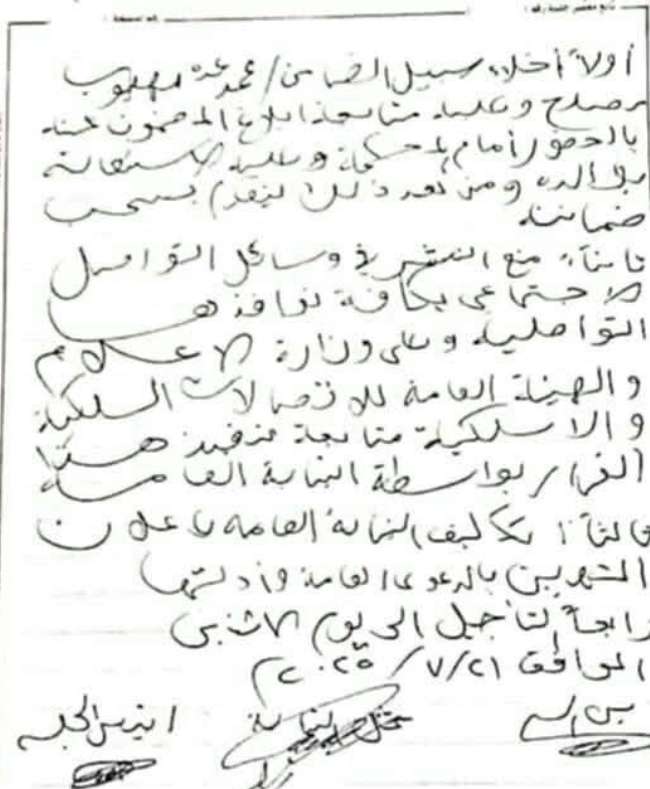 أولاً أخلاء سبيل الضامن/ محمد عبده مهيوب
مصلح وعليه متابعة ابلاغ المضمون عنه
بالحضور أمام المحكمة وعليه الاستعانة
ومن بعد ذلك يتقدم بسحب
ضمانته
ثانياً: منع النشر في وسائل التواصل
الاجتماعي بكافة نوافذها
التواصلية وعلى وزارة الاعلام
والهيئة العامة للاتصالات السلكية
والاسلكية متابعة تنفيذ هذا
القرار بواسطة النيابة العامة
ثالثاً: تكليف النيابة العامة باعلان
المتهمين بالدعوى العامة وأدلتها
رابعاً التأجيل الى يوم الاثنين
الموافق ٢١/٧/٢٠٢٥م
النيابة
الجلسة